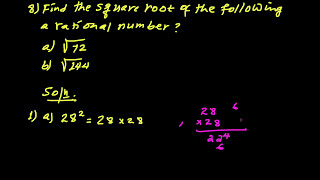 8) Find the square root of the following
a rational number?
a) √72
b) √144
Soln.
1) a) 28² = 28 × 28
, 28 6
× 28
224
6